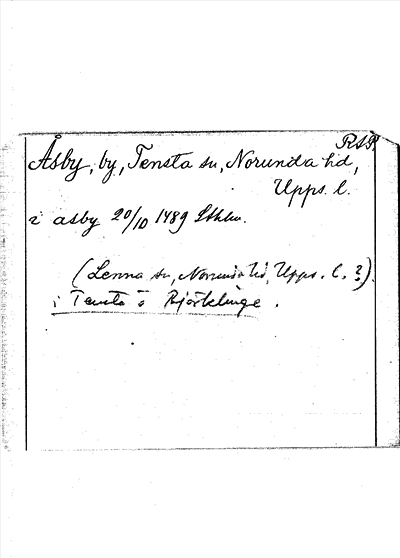 RSP
Åsby, by, Tensta sn, Norunda hd,
Upps. l.
i asby 20/10 1489 Sthlm.
(Lenna sn, Norunda hd, Upps. l. ?).
i Tensta o Björklinge.